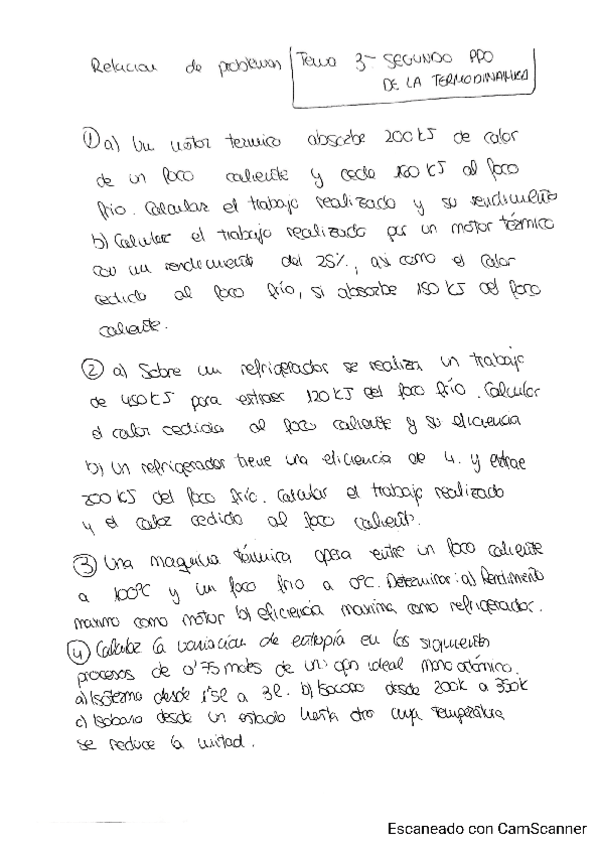 Relacion de problemas Tema 3- SEGUNDO PPO
DE LA TERMODINAMICA
① a) Un motor termico absorbe 200 kJ de calor
de un foco caliente y cede 160 kJ al foco
frio. Calcular el trabajo realizado y su rendimiento
b) Calcular el trabajo realizado por un motor térmico
con un rendimiento del 25%, asi como el calor
cedido al foco frío, si absorbe 150 kJ del foco
caliente.
② a) Sobre un refrigerador se realiza un trabajo
de 450 kJ para extraer 120 kJ del foco frío. Calcular
el calor cedido al foco caliente y su eficiencia
b) Un refrigerador tiene una eficiencia de 4. y extrae
200 kJ del foco frío. Calcular el trabajo realizado
y el calor cedido al foco caliente.
③ Una maquina térmica opera entre un foco caliente
a 100ºC y un foco frio a 0ºC. Determinar: a) Rendimiento
maximo como motor b) eficiencia maxima como refrigerador.
④ Calcular la variacion de entropía en los siguientes
procesos de 0'75 moles de un gas ideal monoatómico.
a) Isotermo desde 1'5L a 3L. b) Isocoro desde 200K a 350K
c) Isobaro desde un estado hasta otro cuya temperatura
se reduce la mitad.
Escaneado con CamScanner